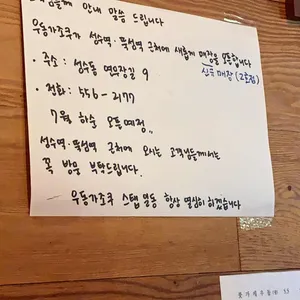 고객님께 안내 말씀 드립니다
우동가조쿠가 성수역·뚝섬역 근처에 새롭게 매장을 오픈합니다
신규매장 (2호점)
· 주소 : 성수동 연무장길 9
· 전화 : 556-2177
7월 하순 오픈예정..
성수역·뚝섬역 근처에 오시는 고객님들께서는
꼭 방문 부탁드립니다.
우동가조쿠 스탭 일동 항상 열심히 하겠습니다